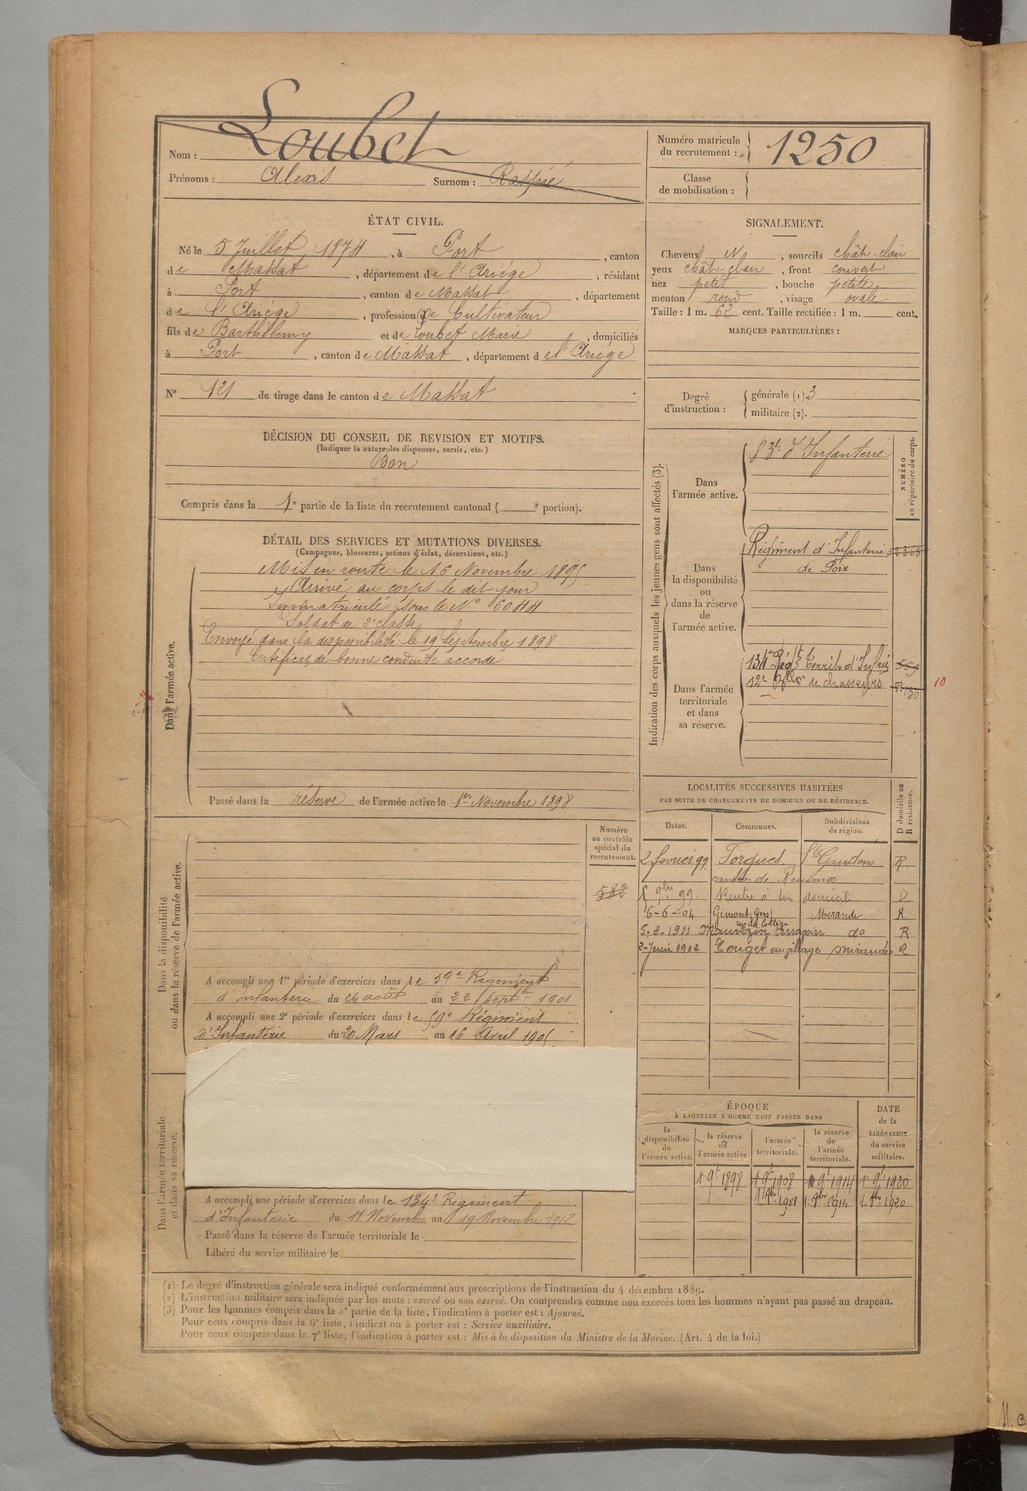 Nom : Loubet
Prénoms : Alexis Surnom :
Numéro matricule du recrutement : 1250
Classe de mobilisation :
ÉTAT CIVIL.
Né le 5 Juillet 1874, à Port, canton
de Massat, département de l'Ariège, résidant
à Port, canton de Massat, département
de l'Ariège, profession de Cultivateur
fils de Barthélemy et de Loubet Marie, domiciliés
à Port, canton de Massat, département de l'Ariège
N° 121 de tirage dans le canton de Massat
SIGNALEMENT.
Cheveux N, sourcils chât-clair
yeux chât-clair, front couvert
nez petit, bouche petite
menton rond, visage ovale
Taille : 1 m. 62 cent. Taille rectifiée : 1 m. cent.
MARQUES PARTICULIÈRES :
Degré d'instruction : générale (1) 3
militaire (2).
DÉCISION DU CONSEIL DE REVISION ET MOTIFS.
(Indiquer la nature des dispenses, sursis, etc.)
Bon
Compris dans la 1e partie de la liste du recrutement cantonal ( e portion).
DÉTAIL DES SERVICES ET MUTATIONS DIVERSES.
(Campagnes, blessures, actions d'éclat, décorations, etc.)
Dans l'armée active.
Mis en route le 16 Novembre 1895
Arrivé au corps le dit jour
Immatriculé sous le N°
Soldat de 2e classe
Envoyé dans la disponibilité le 19 Septembre 1898
Certificat de bonne conduite accordé
Passé dans la réserve de l'armée active le 1er Novembre 1898
Indication des corps auxquels les jeunes gens sont affectés (3).
NUMÉRO au répertoire du corps.
Dans l'armée active.
83e d'Infanterie
Dans la disponibilité ou dans la réserve de l'armée active.
Régiment d'Infanterie
de Foix
Dans l'armée territoriale et dans sa réserve.
134e Régt Territ. d'Infrie
12e Bllon de chasseurs
10
LOCALITÉS SUCCESSIVES HABITÉES
PAR SUITE DE CHANGEMENTS DE DOMICILE OU DE RÉSIDENCE.
Dates. Communes. Subdivisions de région. D domicile ou R résidence.
2 février 99 St Gaudens R
9bre 99 Rentre à son domicile D
16-6-04 Gimont, Gers Mirande R
5-2-1911 do R
1912 Touget au village Mirande R
Dans la disponibilité ou dans la réserve de l'armée active.
Numéro au contrôle spécial du recrutement.
582
A accompli une 1re période d'exercices dans le 59e Régiment
d'Infanterie du 26 août au 22 Septbre 1901
A accompli une 2e période d'exercices dans le 59e Régiment
d'Infanterie du 20 Mars au 16 Avril 1905
Dans l'armée territoriale et dans sa réserve.
A accompli une période d'exercices dans le 134e Régiment
d'Infanterie du 11 Novembre au 19 Novembre 1912
Passé dans la réserve de l'armée territoriale le
Libéré du service militaire le
ÉPOQUE
À LAQUELLE L'HOMME DOIT PASSER DANS
la disponibilité de l'armée active. la réserve de l'armée active. l'armée territoriale. la réserve de l'armée territoriale. DATE de la LIBÉRATION du service militaire.
1 9bre 1898 1 9bre 1908 1 9bre 1914 1 9bre 1920
1 9bre 1914 1 9bre 1920
(1) Le degré d'instruction générale sera indiqué conformément aux prescriptions de l'instruction du 4 décembre 1889.
(2) L'instruction militaire sera indiquée par les mots : exercé ou non exercé. On comprendra comme non exercés tous les hommes n'ayant pas passé au drapeau.
(3) Pour les hommes compris dans la 5e partie de la liste, l'indication à porter est : Ajourné.
Pour ceux compris dans la 6e liste, l'indication à porter est : Service auxiliaire.
Pour ceux compris dans la 7e liste, l'indication à porter est : Mis à la disposition du Ministre de la Marine. (Art. 4 de la loi.)